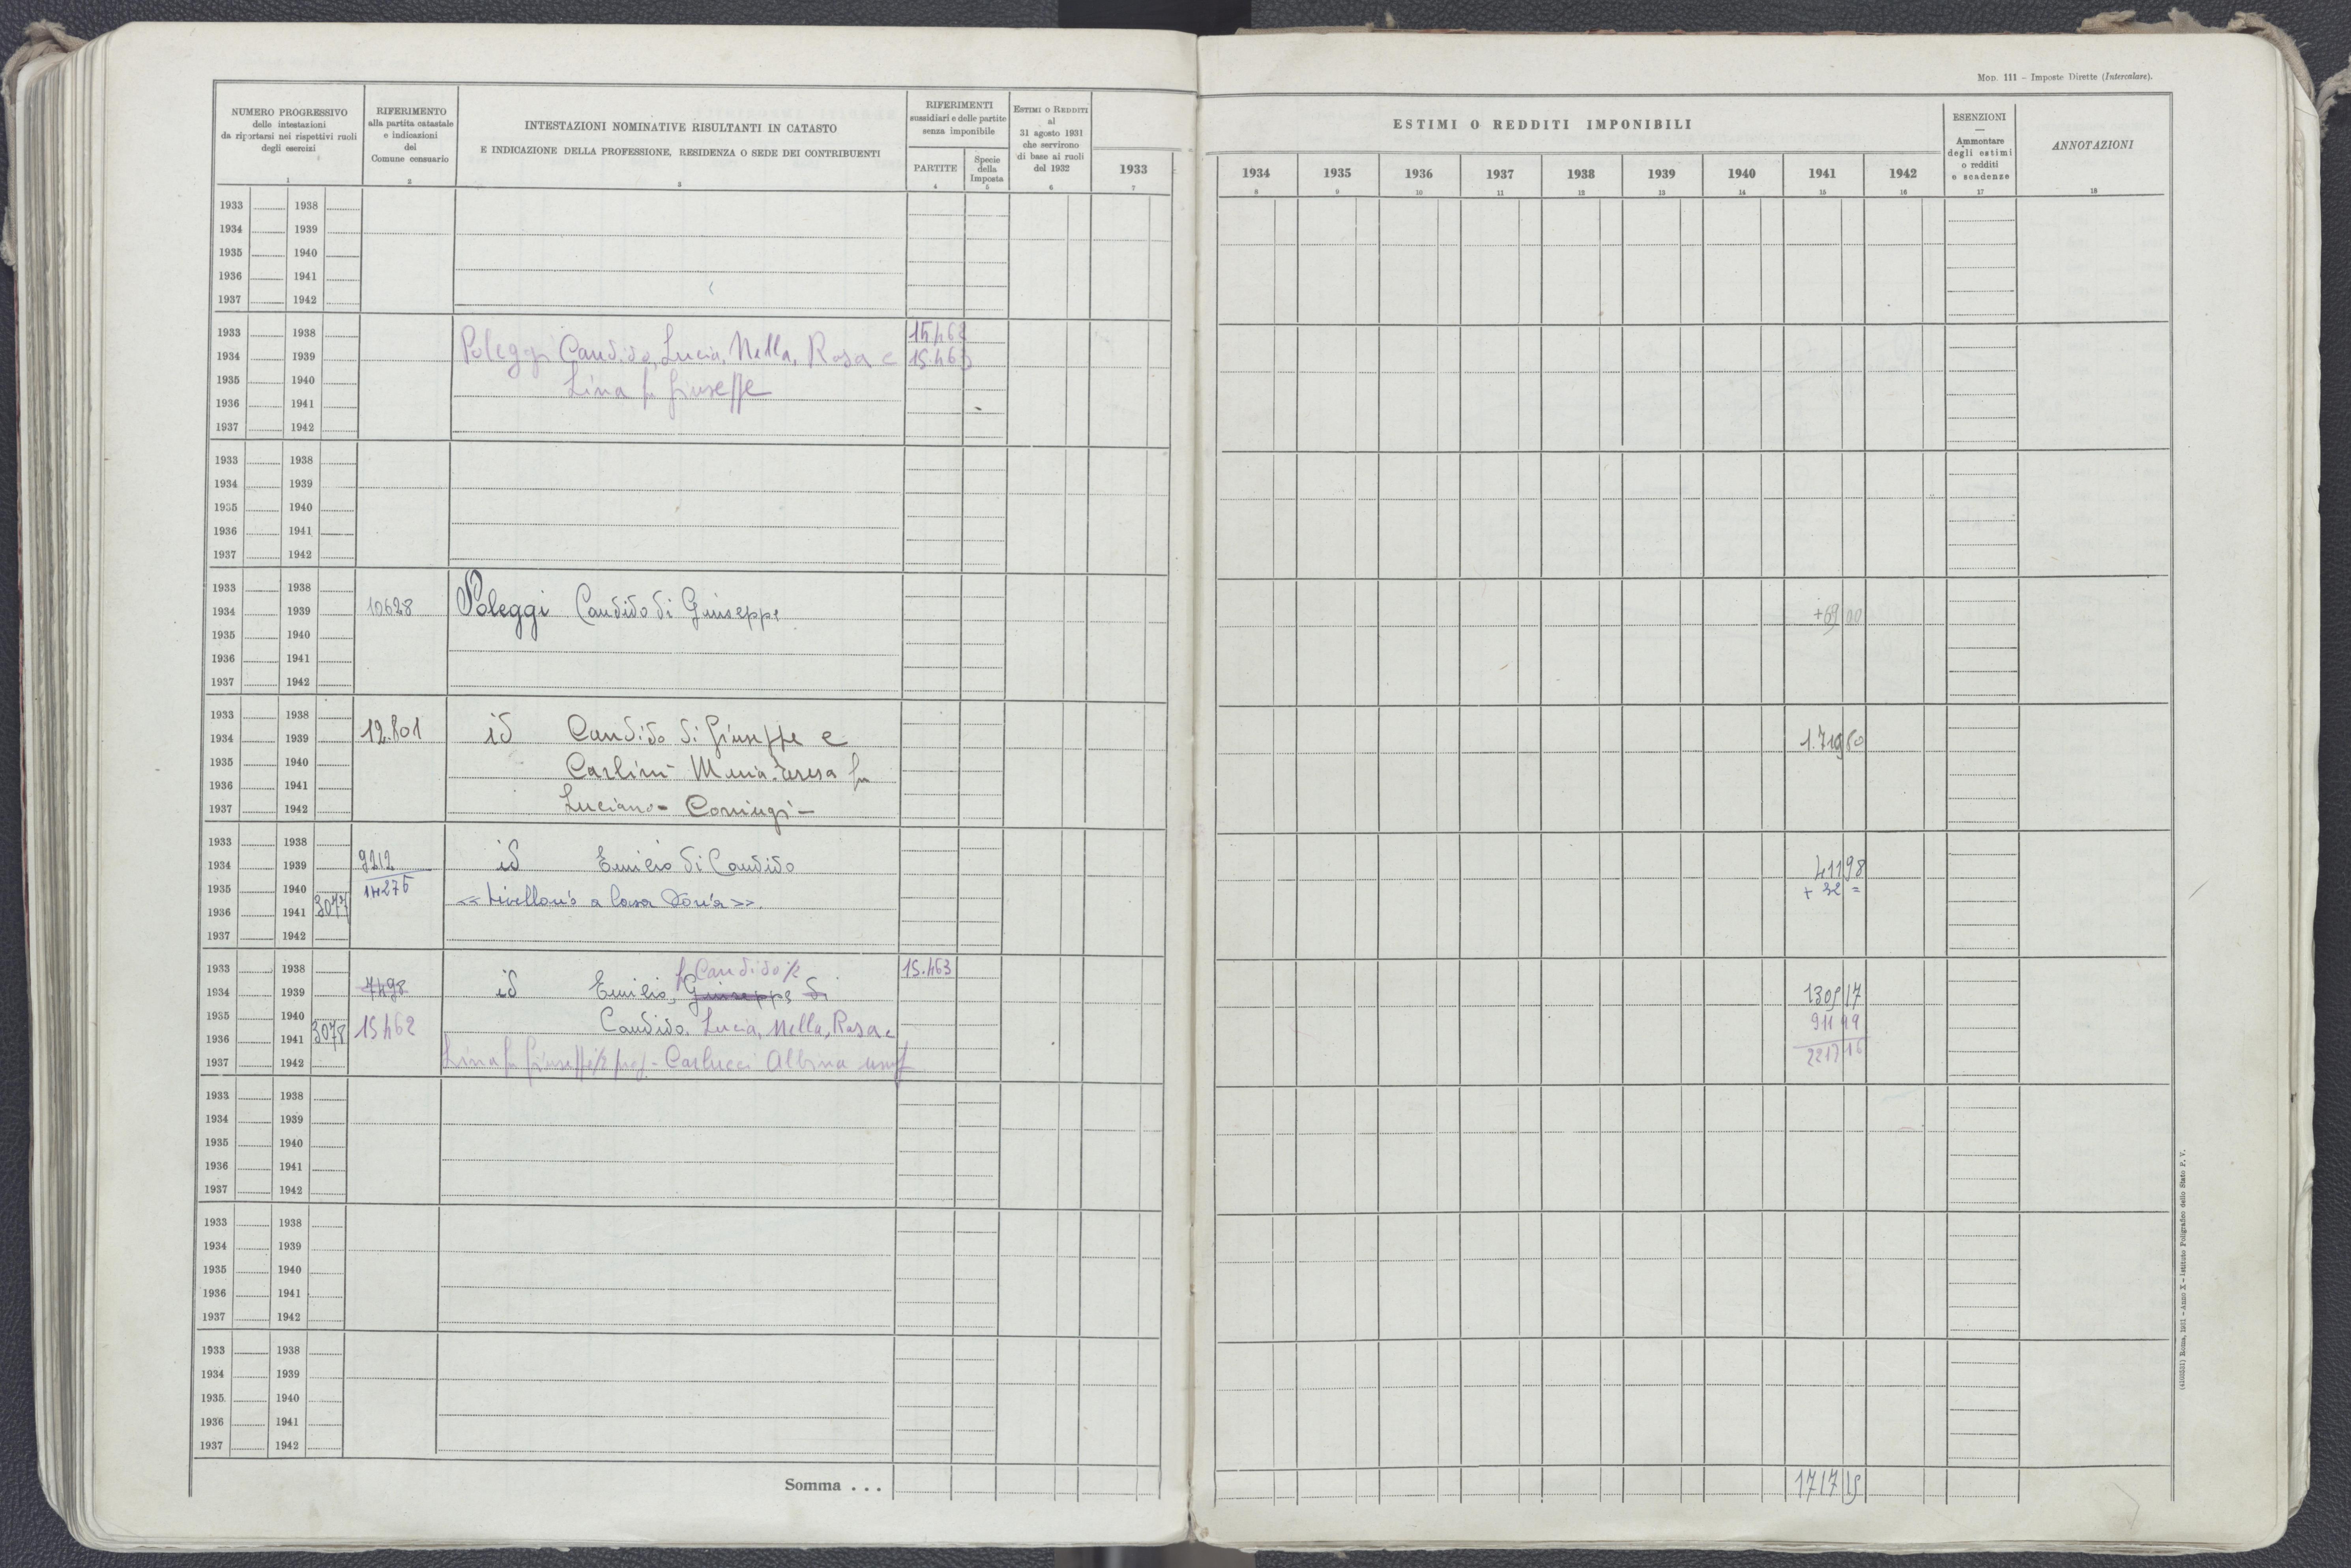 Mod. 111 – Imposte Dirette (Intercalare).
NUMERO PROGRESSIVO
delle intestazioni
da riportarsi nei rispettivi ruoli
degli esercizi
1
RIFERIMENTO
alla partita catastale
e indicazioni
del
Comune censuario
2
INTESTAZIONI NOMINATIVE RISULTANTI IN CATASTO
E INDICAZIONE DELLA PROFESSIONE, RESIDENZA O SEDE DEI CONTRIBUENTI
3
RIFERIMENTI
sussidiari e delle partite
senza imponibile
PARTITE
4
Specie
della
Imposta
5
ESTIMI O REDDITI
al
31 agosto 1931
che servirono
di base ai ruoli
del 1932
6
1933
7
ESTIMI O REDDITI IMPONIBILI
1934 1935 1936 1937 1938 1939 1940 1941 1942
8 9 10 11 12 13 14 15 16
ESENZIONI
—
Ammontare
degli estimi
o redditi
e scadenze
17
ANNOTAZIONI
18
1933 1938
1934 1939
1935 1940
1936 1941
1937 1942
1933 1938 15462
1934 1939 Poleggi Candido, Lucia, Nella, Rosa e 15.463
1935 1940 Lina fu Giuseppe
1936 1941
1937 1942
1933 1938
1934 1939
1935 1940
1936 1941
1937 1942
1933 1938
1934 1939 10628 Poleggi Candido di Giuseppe +69 00
1935 1940
1936 1941
1937 1942
1933 1938
1934 1939 12.801 id Candido di Giuseppe e 1.719 80
1935 1940 Carlini Maria Teresa fu
1936 1941 Luciano - Coniugi -
1937 1942
1933 1938
1934 1939 9212 id Emilio di Candido 411 98
1935 1940 14276 + 32 =
1936 1941 3077 << livellario a Casa Doria >>
1937 1942
1933 1938 fu Candido 1/2 15.463
1934 1939 7498 id Emilio, Giuseppe di 1305 17
1935 1940 15462 Candido, Lucia, Nella, Rosa e 911 99
1936 1941 3078
1937 1942 Lina fu Giuseppe 1/2 prop - Carlucci Albina usuf 2217 16
1933 1938
1934 1939
1935 1940
1936 1941
1937 1942
1933 1938
1934 1939
1935 1940
1936 1941
1937 1942
1933 1938
1934 1939
1935 1940
1936 1941
1937 1942
Somma . . . 1717 15
(4103331) Roma, 1931 – Anno X – Istituto Poligrafico dello Stato P. V.